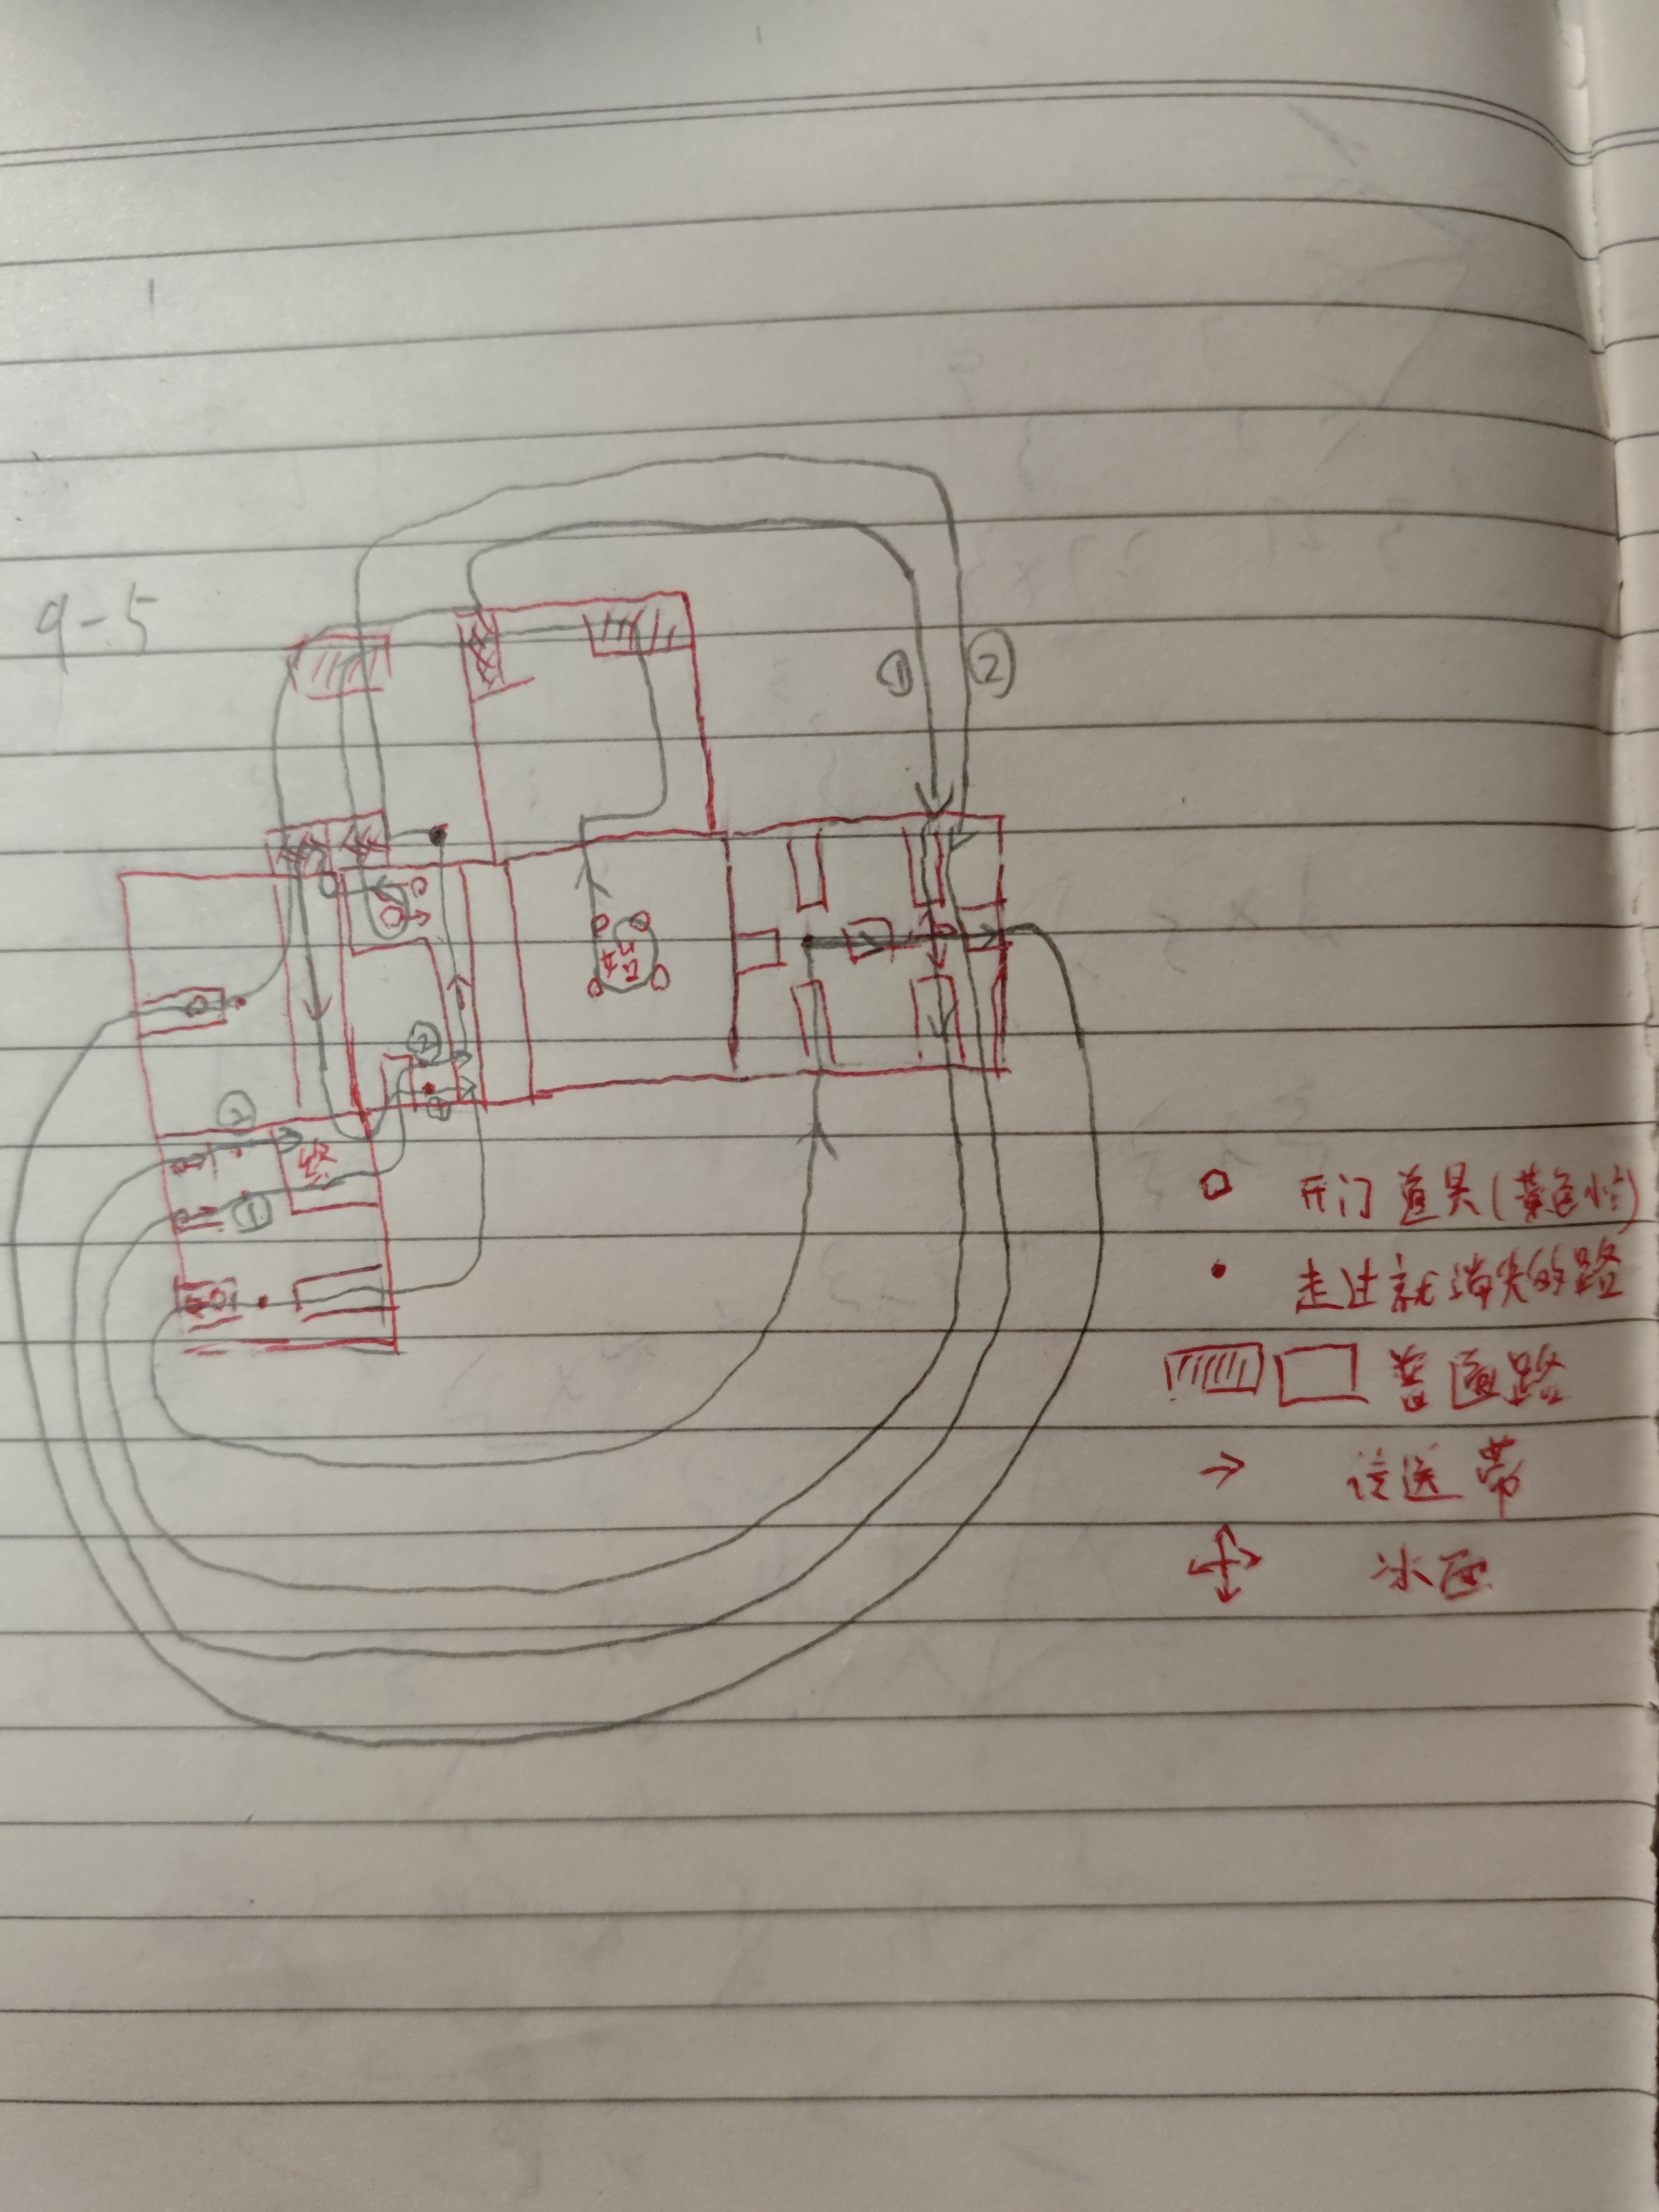 9-5
①
②
起
②
②
终
①
①
开门道具(黄色小竹)
走过就消失的路
普通路
传送带
冰面